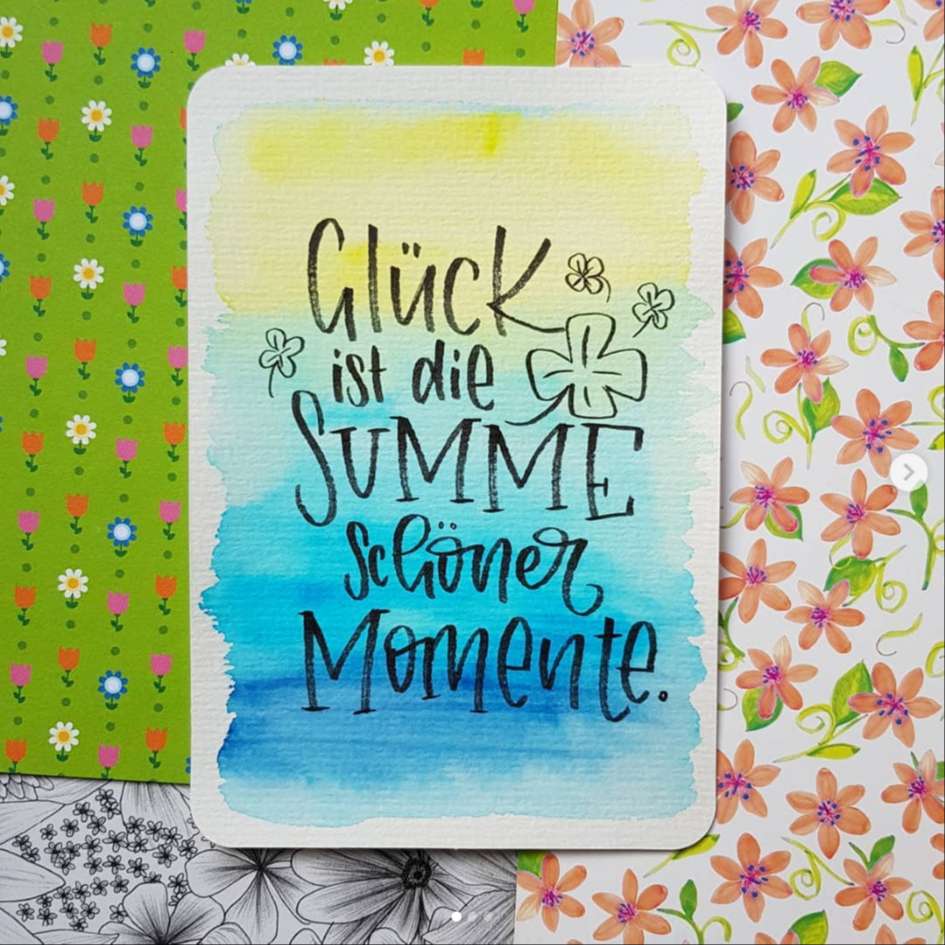 Glück
ist die
SUMME
schöner
Momente.